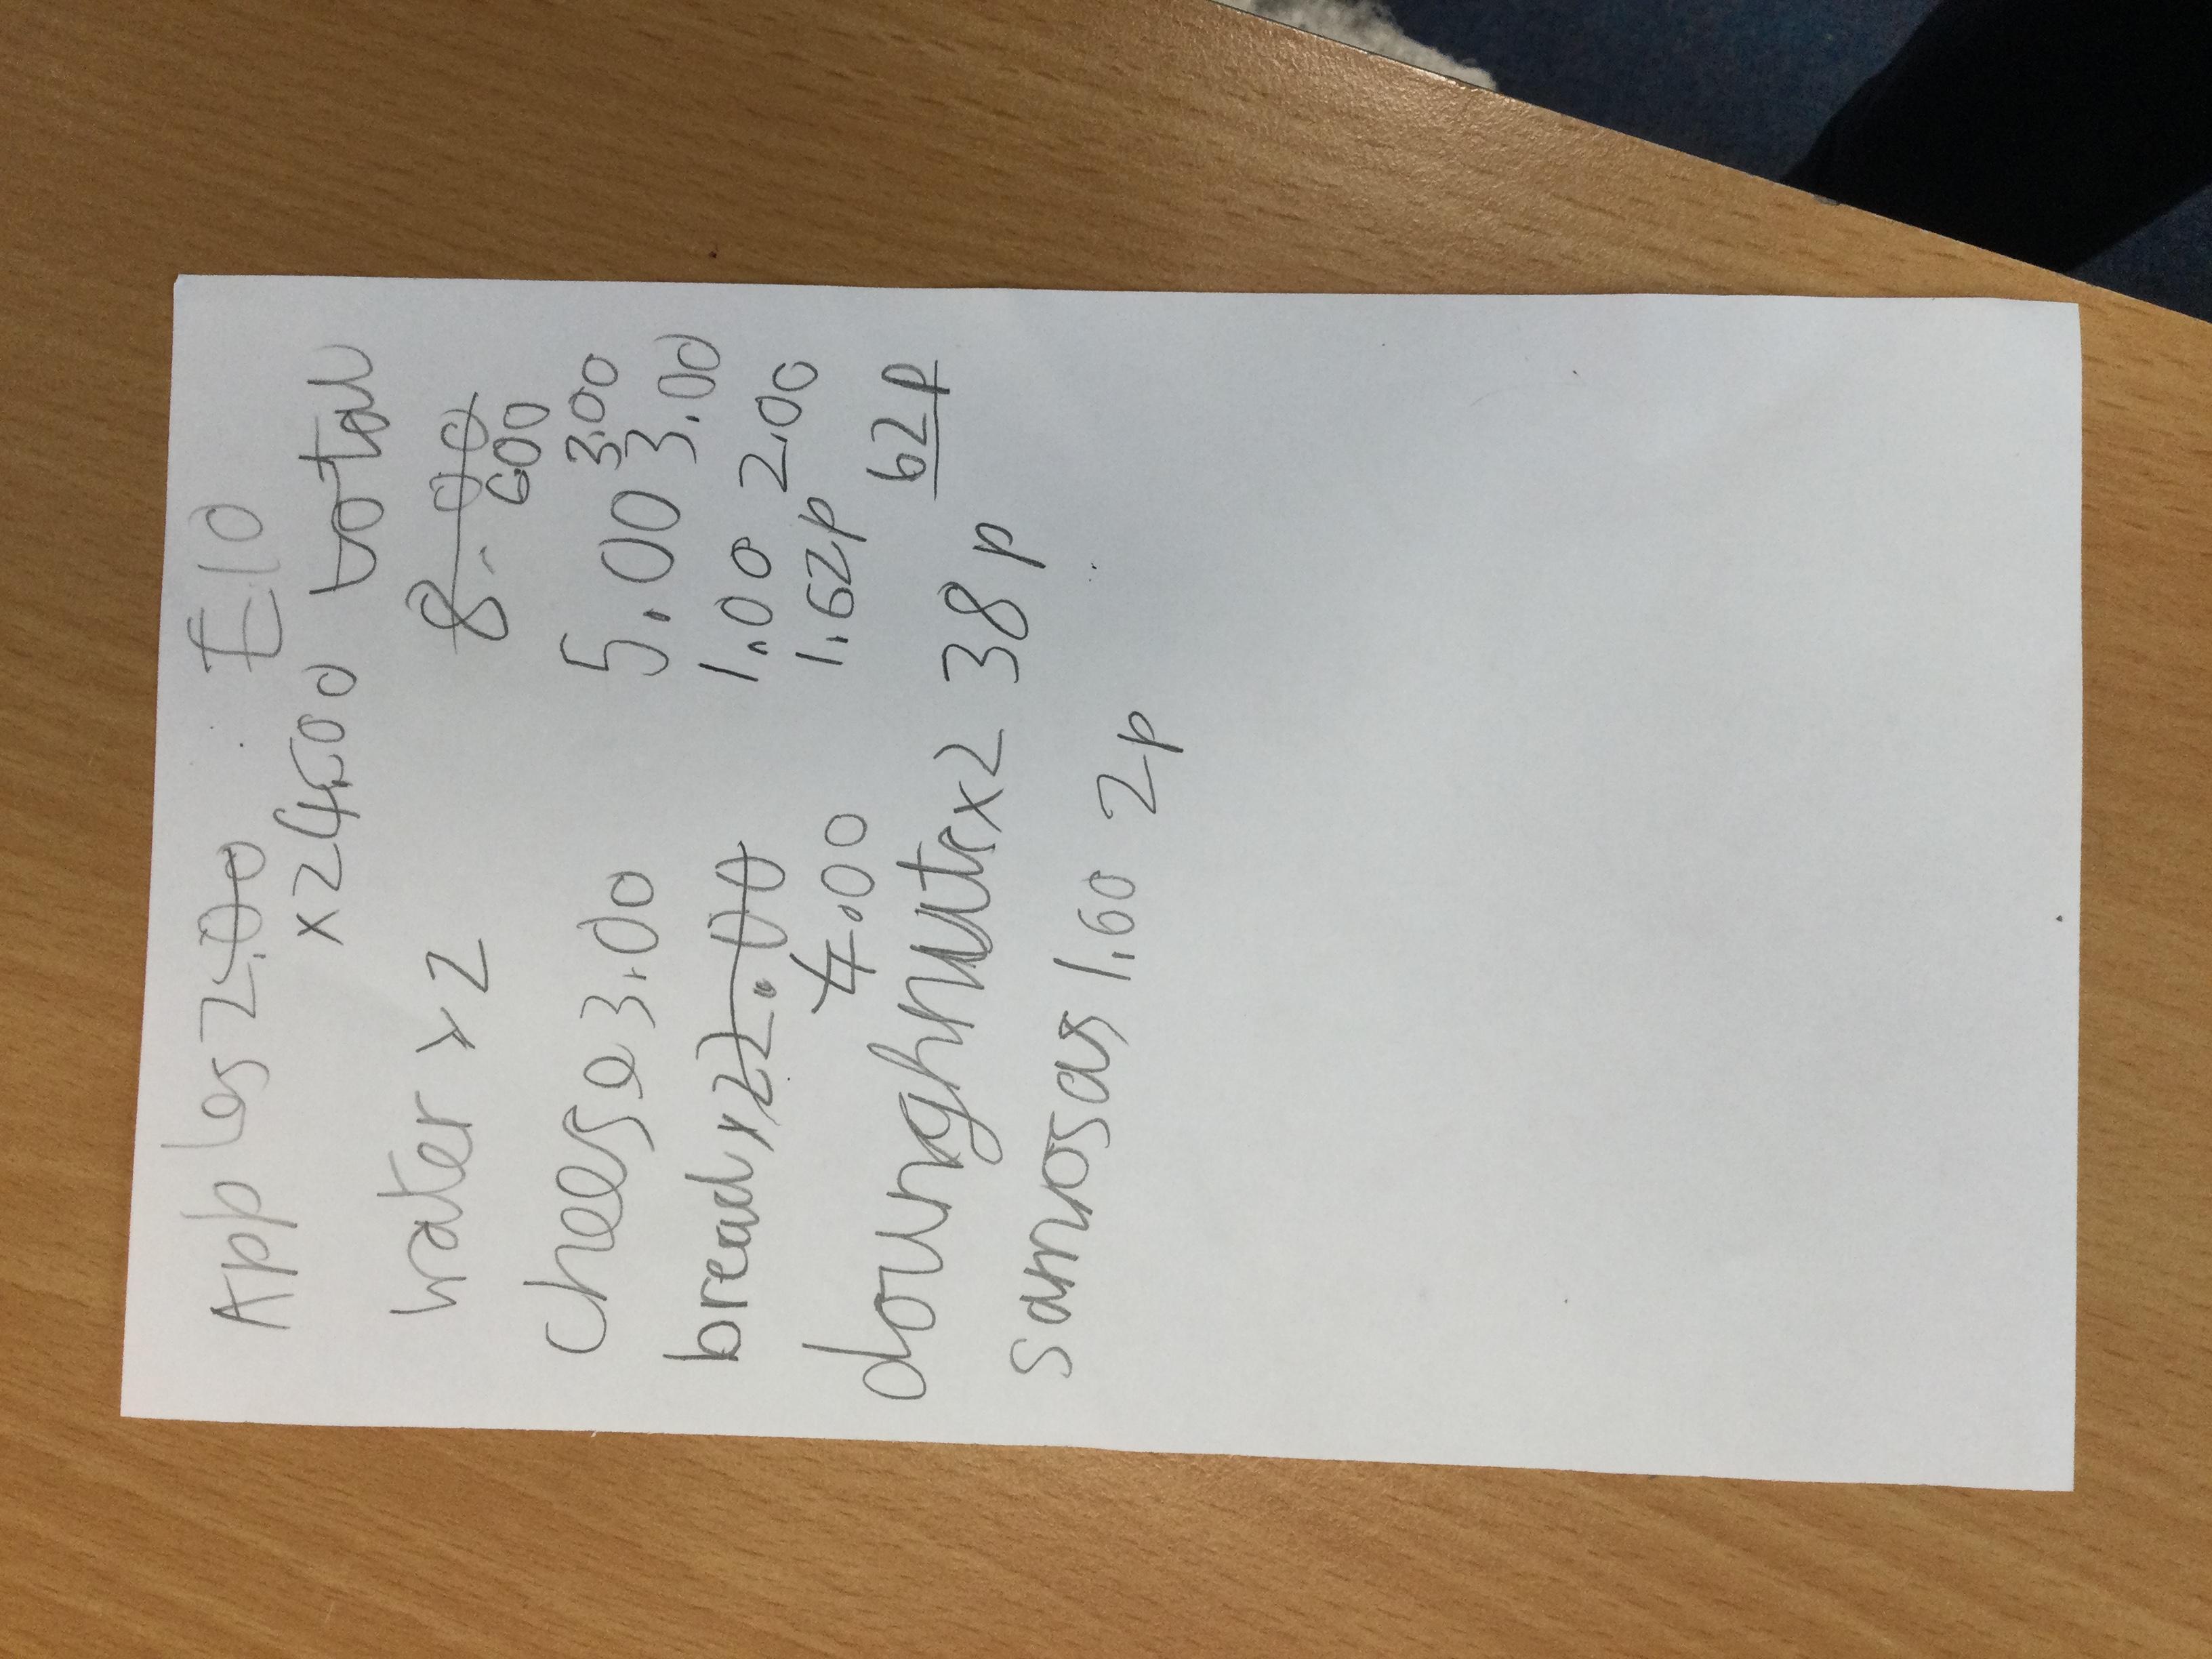 Apples 2.00 £10
x2 4.00 total
water x 2 8.00
6.00
cheese 3.00 5.00 3.00
3.00
bread x2 2.00 1.00 2.00
4.00 1.62p
doughnuts x2 38p 62p
samosas 1.60 2p